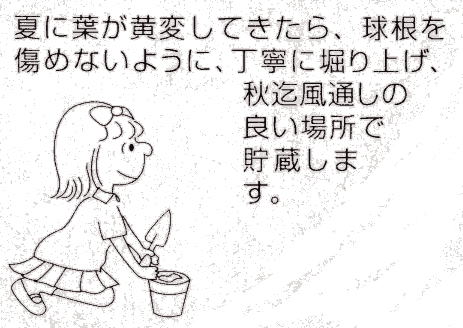 夏に葉が黄変してきたら、球根を
傷めないように、丁寧に堀り上げ、
秋迄風通しの
良い場所で
貯蔵しま
す。